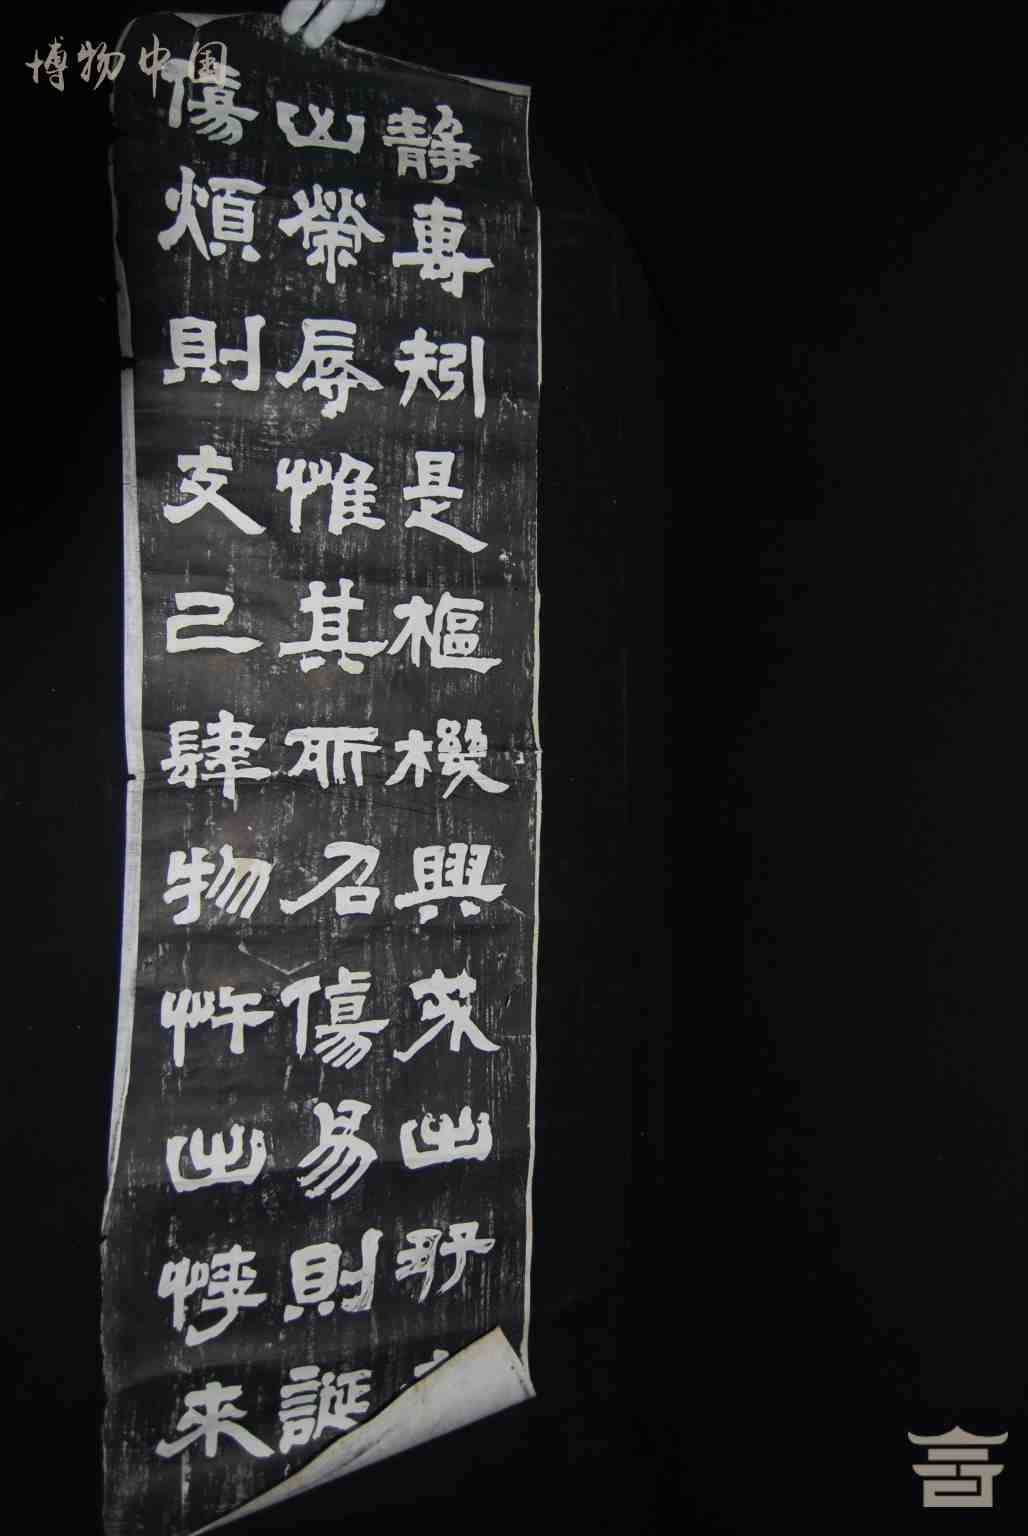 博物中国
靜專矧是樞機興戎出好
凶榮辱惟其所召傷易則誕
傷煩則支己肆物忤出悖來